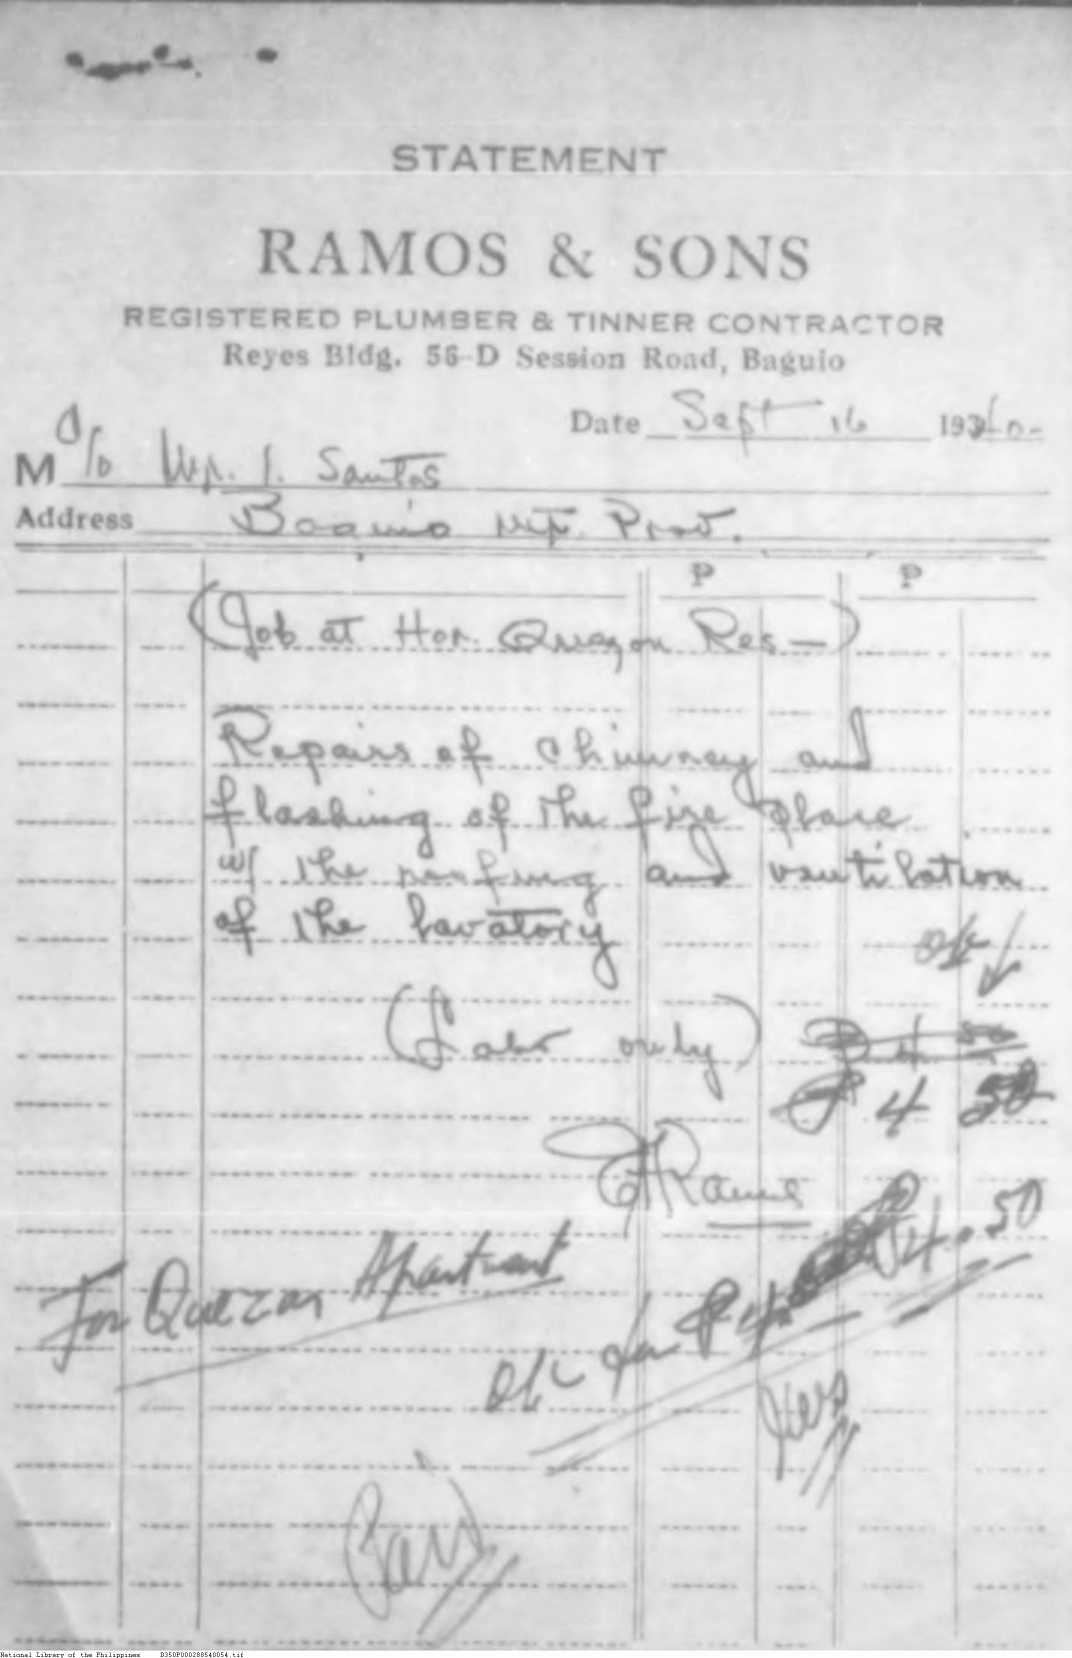 STATEMENT
RAMOS & SONS
REGISTERED PLUMBER & TINNER CONTRACTOR
Reyes Bldg. 56-D Session Road, Baguio
Date Sept 16 1940-
M c/o Mr. I. Santos
Address Baguio Mt. Prov.
P P
(Job at Hon. Quezon Res—)
Repairs of chimney and
flashing of the fire place
w/ the roofing and ventilation
of the lavatory
ok
(Labor only) P 4 50
P 4 50
Ramos
For Quezon Apartment
P4.50
ok for P4
Paid
National Library of the Philippines D350P000288540054.tif